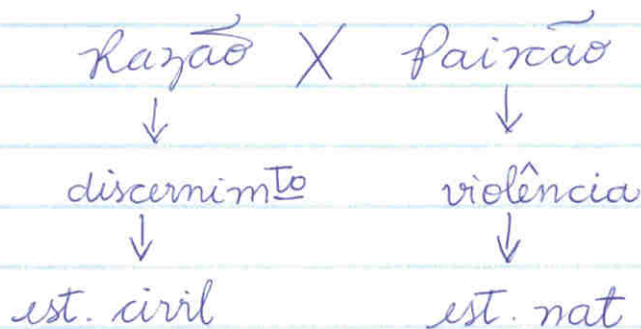 Razão X Paixão
↓ ↓
discernimto violência
↓ ↓
est. civil est. nat